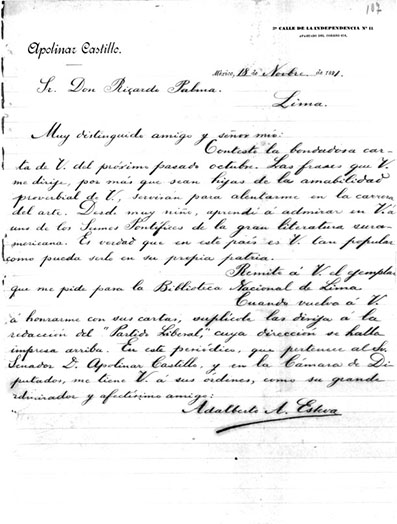 107
2ª CALLE DE LA INDEPENDENCIA Nº 11
APARTADO DEL CORREO
Apolinar Castillo.
México, 18 de Novbre. de 1891.
Sr. Don Ricardo Palma.
Lima.
Muy distinguido amigo y señor mio:
Contesto la bondadosa car-
ta de V. del próximo pasado octubre. Las frases que V.
me dirige, por más que sean hijas de la amabilidad
proverbial de V., serviran para alentarme en la carrera
del arte. Desde muy niño, aprendí á admirar en V. á
uno de los Sumos Pontífices de la gran literatura sura-
mericana. Es verdad que en este país es V. tan popular
como pueda serlo en su propia patria.
Remito á V. el ejemplar
que me pide para la Biblioteca Nacional de Lima
Cuando vuelva á V.
á honrarme con sus cartas, suplícole las dirija á la
redacción del "Partido Liberal," cuya dirección se halla
impresa arriba. En este periódico, que pertenece al Sr.
Senador D. Apolinar Castillo, y en la Cámara de Di-
putados, me tiene V. á sus ordenes, como su grande
admirador y afectísimo amigo:
Adalberto A. Esteva